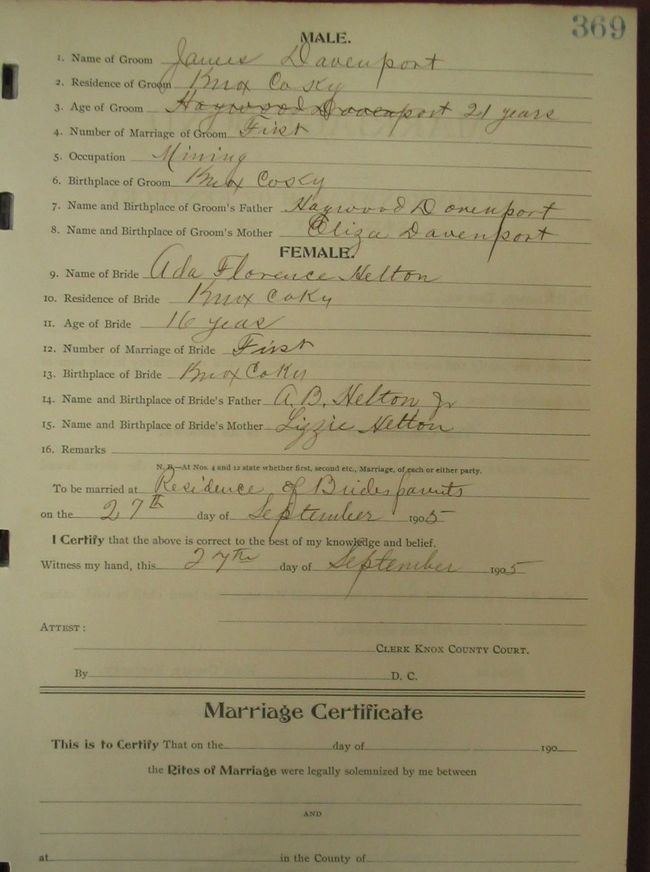 369
MALE.
1. Name of Groom James Davenport
2. Residence of Groom Knox Co Ky
3. Age of Groom Haywood Davenport 21 years
4. Number of Marriage of Groom First
5. Occupation Mining
6. Birthplace of Groom Knox Co Ky
7. Name and Birthplace of Groom's Father Haywood Davenport
8. Name and Birthplace of Groom's Mother Eliza Davenport
FEMALE.
9. Name of Bride Ada Florence Helton
10. Residence of Bride Knox Co Ky
11. Age of Bride 16 yeas
12. Number of Marriage of Bride First
13. Birthplace of Bride Knox Co Ky
14. Name and Birthplace of Bride's Father A. B. Helton Jr
15. Name and Birthplace of Bride's Mother Lizzie Helton
16. Remarks
N. B.—At Nos. 4 and 12 state whether first, second etc., Marriage, of each or either party.
To be married at Residence of Brides parents
on the 27th day of September 1905
I Certify that the above is correct to the best of my knowledge and belief.
Witness my hand, this 27th day of September 1905
ATTEST:
CLERK KNOX COUNTY COURT.
By D. C.
Marriage Certificate
This is to Certify That on the day of 190
the Rites of Marriage were legally solemnized by me between
AND
at in the County of